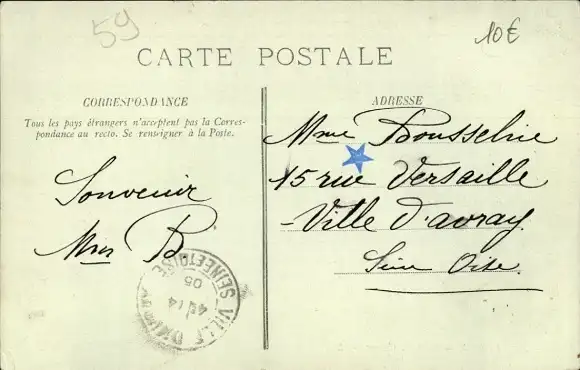 59
10€
CARTE POSTALE
CORRESPONDANCE
Tous les pays étrangers n'acceptent pas la Corres-
pondance au recto. Se renseigner à la Poste.
Souvenir
B
ADRESSE
Mme
15 rue Versaille
Ville d'avray
Seine Oise
VILLE D'AVRAY
SEINE ET OISE
05